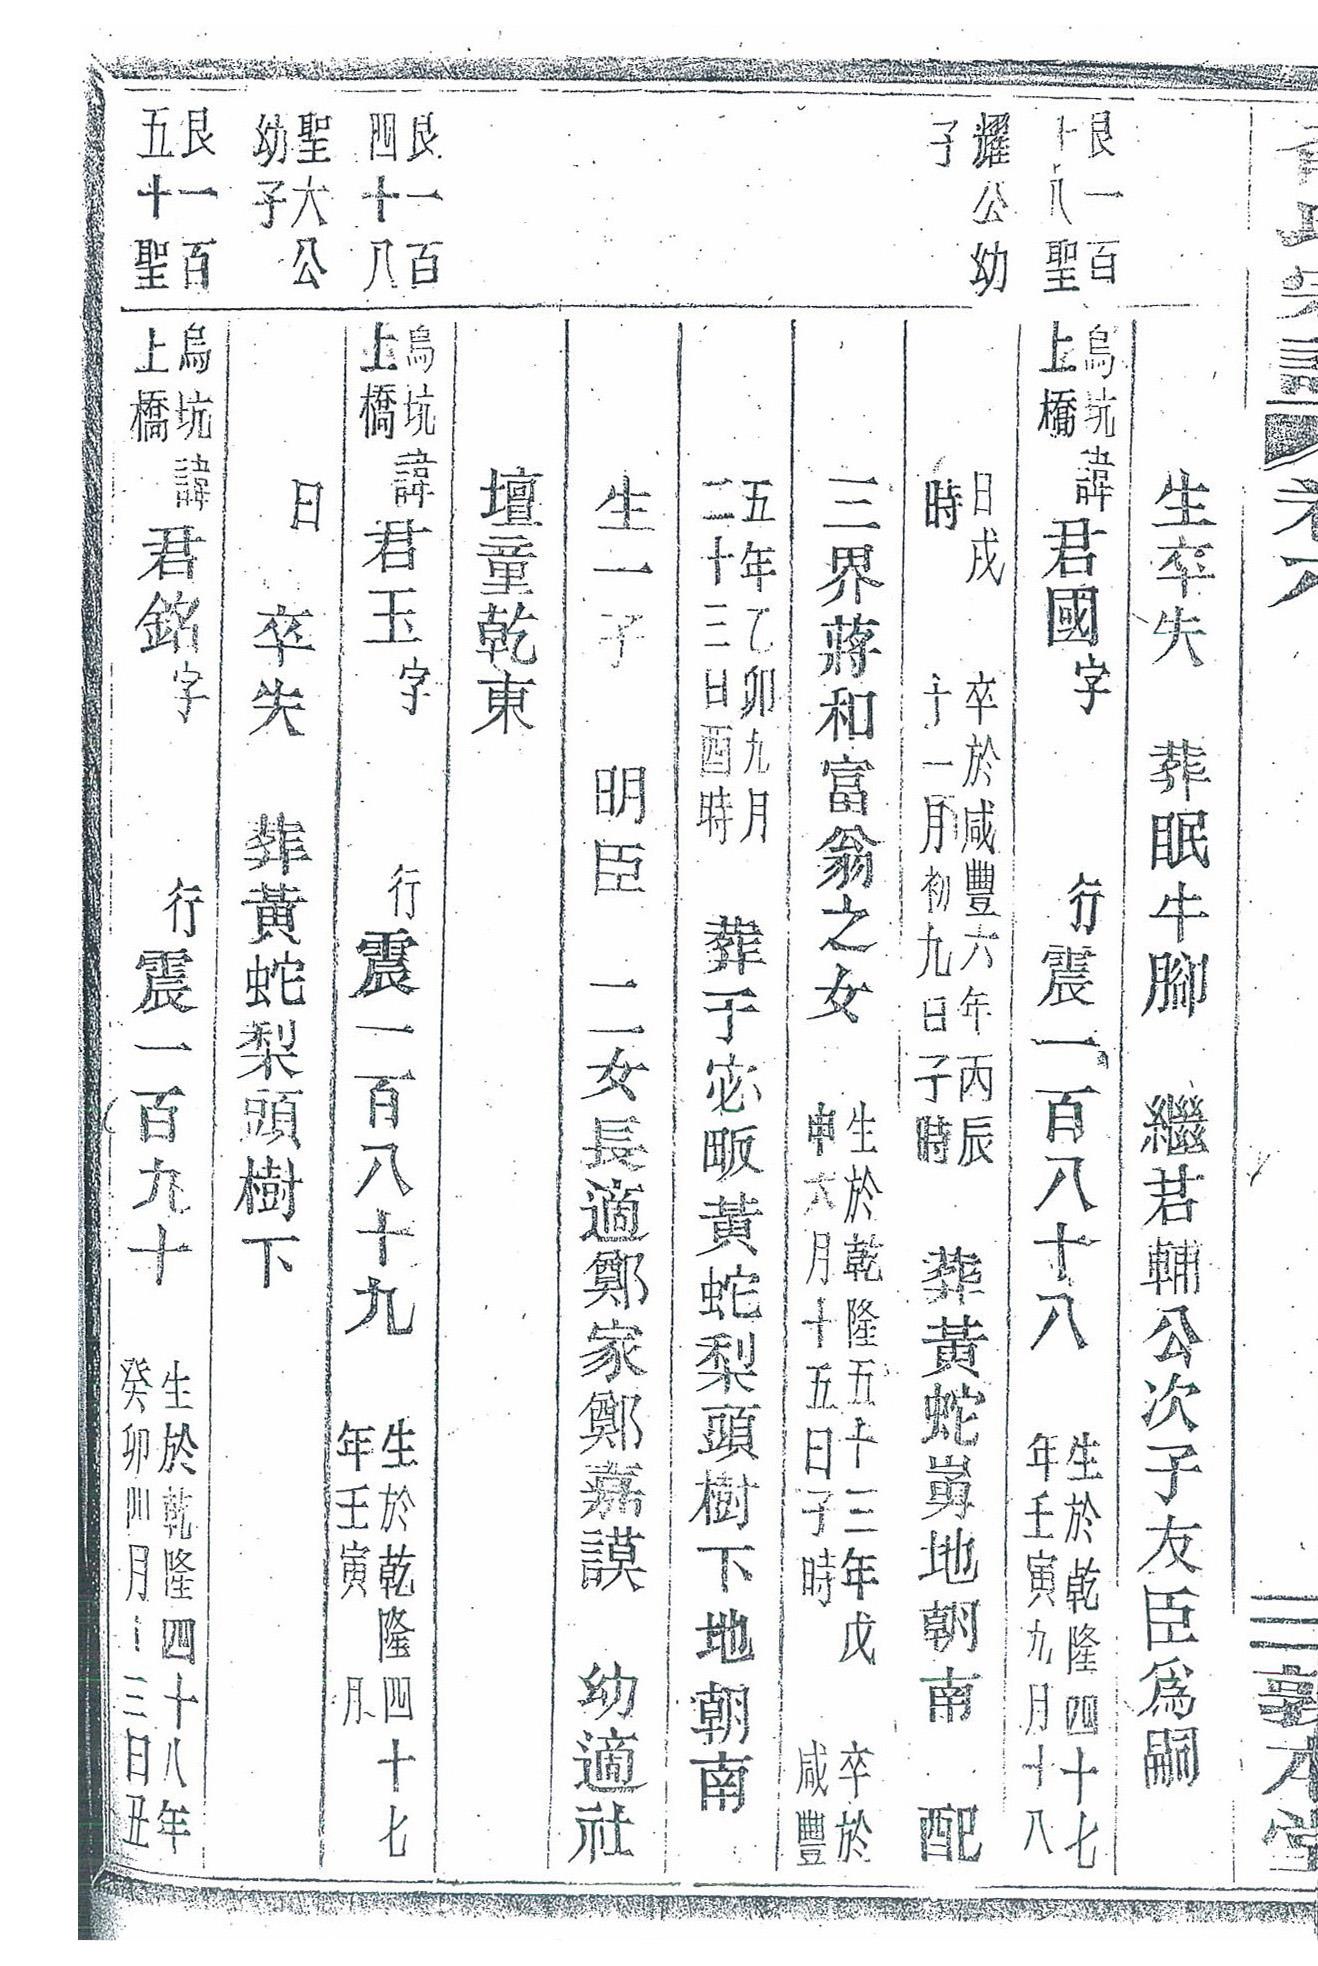 宗譜 卷六 敦本堂
生卒失 葬眠牛腳 繼君輔公次子友臣為嗣
艮一百
十八聖
烏坑
上橋
諱君國字 行震一百八十八 生於乾隆四十七
年壬寅九月十八
耀公幼
子
日戌
時
卒於咸豐六年丙辰
十一月初九日子時
葬黃蛇崗地朝南 配
三界蔣和富翁之女 生於乾隆五十三年戊
申六月十五日子時
卒於
咸豐
五年乙卯九月
二十三日酉時
葬于宓畈黃蛇梨頭樹下地朝南
生一子 明臣 二女長適鄭家鄭嘉謨 幼適社
壇童乾東
艮一百
四十八
烏坑
上橋
諱君玉字 行震一百八十九 生於乾隆四十七
年壬寅 月
聖六公
幼子
日 卒失 葬黃蛇梨頭樹下
艮一百
五十聖
烏坑
上橋
諱君銘字 行震一百九十 生於乾隆四十八年
癸卯四月 三日丑